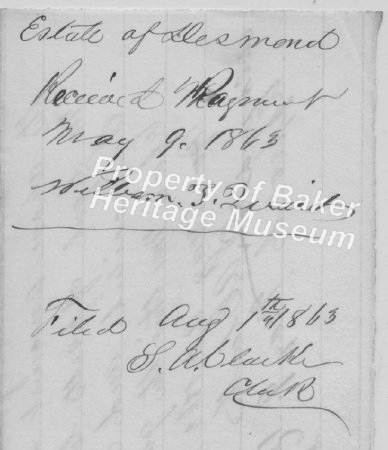 Estate of Desmond
Received Payment
May 9. 1863
William
Property Of Baker
Heritage Museum
Filed Aug 1th 1863
S. A. Clarke
Clerk